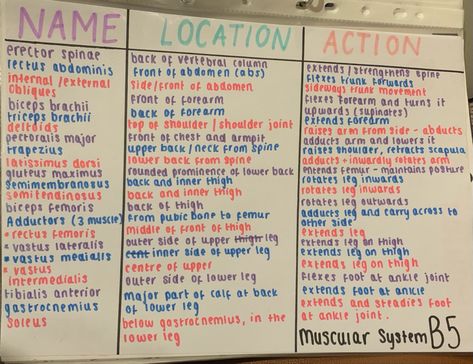 NAME LOCATION ACTION
erector spinae back of vertebral column extends/strengthens spine
rectus abdominis front of abdomen (abs) flexes trunk forwards
internal/external side/front of abdomen sideways trunk movement
obliques front of forearm flexes forearm and turns it
biceps brachii upwards (supinates)
triceps brachii back of forearm extends forearm
deltoids top of shoulder/shoulder joint raises arm from side - abducts
pectoralis major front of chest and armpit adducts arm and lowers it
trapezius upper back/neck from spine raises shoulder, retracts scapula
latissimus dorsi lower back from spine adducts + inwardly rotates arm
gluteus maximus rounded prominence of lower back extends femur - maintains posture
semimembranosus back and inner thigh rotates leg inwards
semitendinosus back and inner thigh rotates leg inwards
biceps femoris back of thigh rotates leg outwards
Adductors (3 muscle) from pubic bone to femur adducts leg and carry across to
other side
• rectus femoris middle of front of thigh extends leg
• vastus lateralis outer side of upper thigh leg extends leg on thigh
• vastus medialis cent inner side of upper leg extends leg on thigh
• vastus centre of upper extends leg on thigh
intermedialis
tibialis anterior outer side of lower leg flexes foot at ankle joint
gastrocnemius major part of calf at back extends foot at ankle
of lower leg
soleus below gastrocnemius, in the extends and steadies foot
lower leg at ankle joint.
Muscular System B5